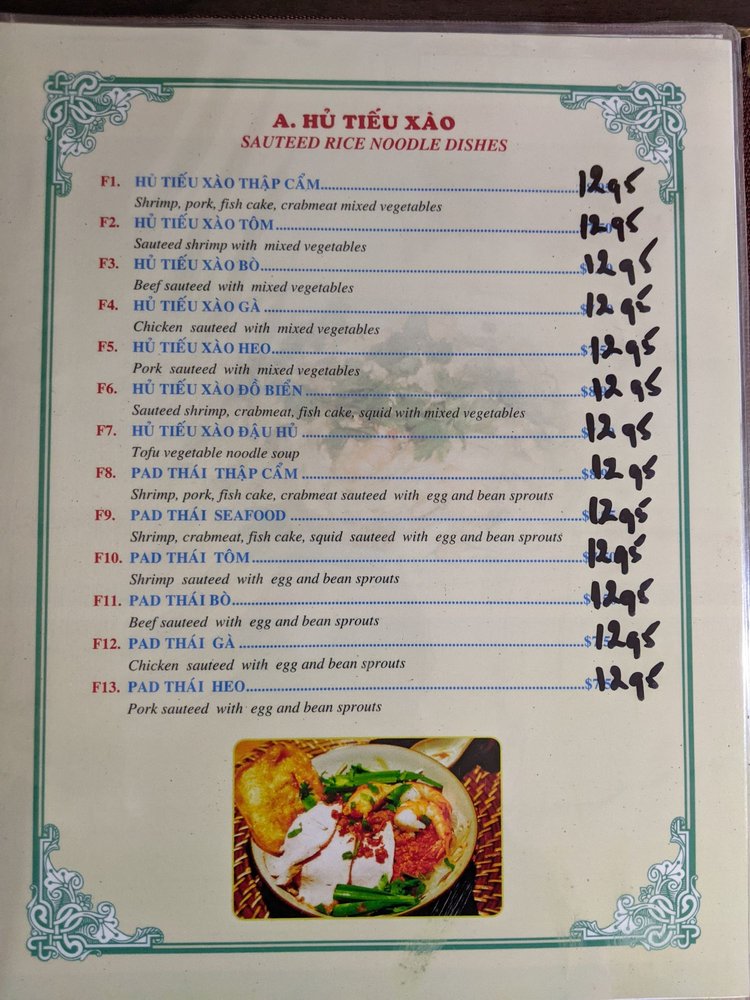 A. HỦ TIẾU XÀO
SAUTEED RICE NOODLE DISHES
F1. HỦ TIẾU XÀO THẬP CẨM 1295
Shrimp, pork, fish cake, crabmeat mixed vegetables
F2. HỦ TIẾU XÀO TÔM 1295
Sauteed shrimp with mixed vegetables
F3. HỦ TIẾU XÀO BÒ 1295
Beef sauteed with mixed vegetables
F4. HỦ TIẾU XÀO GÀ 1295
Chicken sauteed with mixed vegetables
F5. HỦ TIẾU XÀO HEO 1295
Pork sauteed with mixed vegetables
F6. HỦ TIẾU XÀO ĐỒ BIỂN 1295
Sauteed shrimp, crabmeat, fish cake, squid with mixed vegetables
F7. HỦ TIẾU XÀO ĐẬU HỦ 1295
Tofu vegetable noodle soup
F8. PAD THÁI THẬP CẨM 1295
Shrimp, pork, fish cake, crabmeat sauteed with egg and bean sprouts
F9. PAD THÁI SEAFOOD 1295
Shrimp, crabmeat, fish cake, squid sauteed with egg and bean sprouts
F10. PAD THÁI TÔM 1295
Shrimp sauteed with egg and bean sprouts
F11. PAD THÁI BÒ 1295
Beef sauteed with egg and bean sprouts
F12. PAD THÁI GÀ 1295
Chicken sauteed with egg and bean sprouts
F13. PAD THÁI HEO 1295
Pork sauteed with egg and bean sprouts